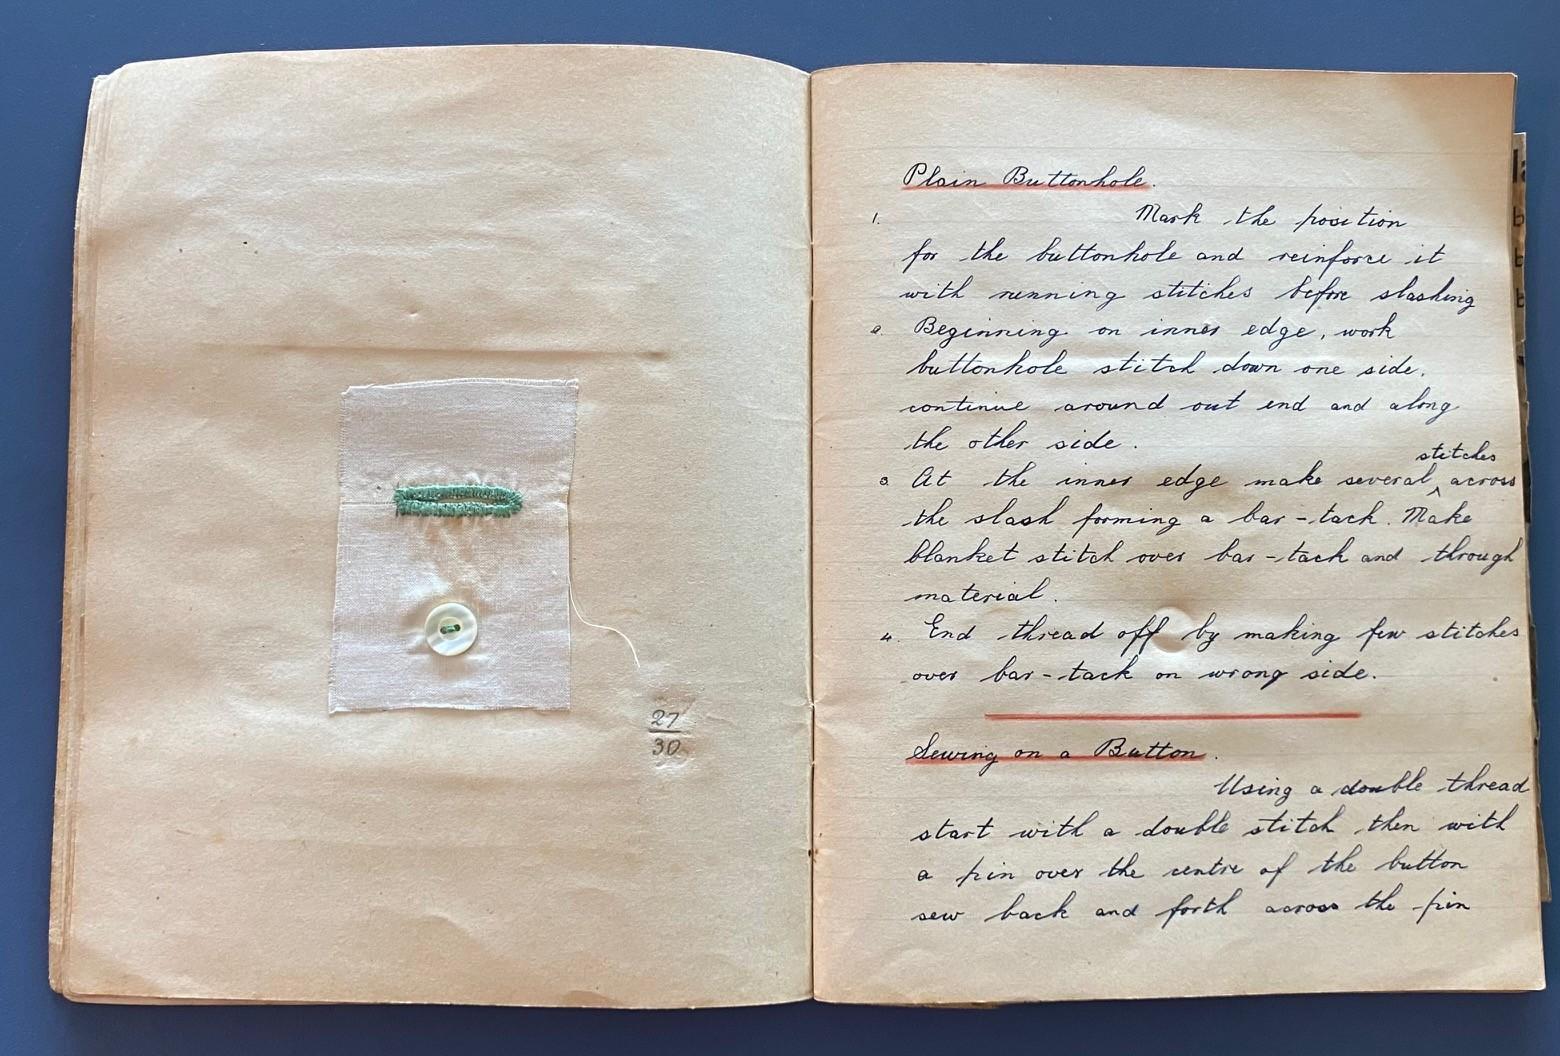 27
30
Plain Buttonhole.
1. Mark the position
for the buttonhole and reinforce it
with running stitches before slashing
2. Beginning on inner edge, work
buttonhole stitch down one side.
continue around out end and along
the other side.
stitches
3. At the inner edge make several ^ across
the slash forming a bar-tack. Make
blanket stitch over bar-tack and through
material.
4. End thread off by making few stitches
over bar-tack on wrong side.
Sewing on a Button.
Using a double thread
start with a double stitch then with
a pin over the centre of the button
sew back and forth across the pin